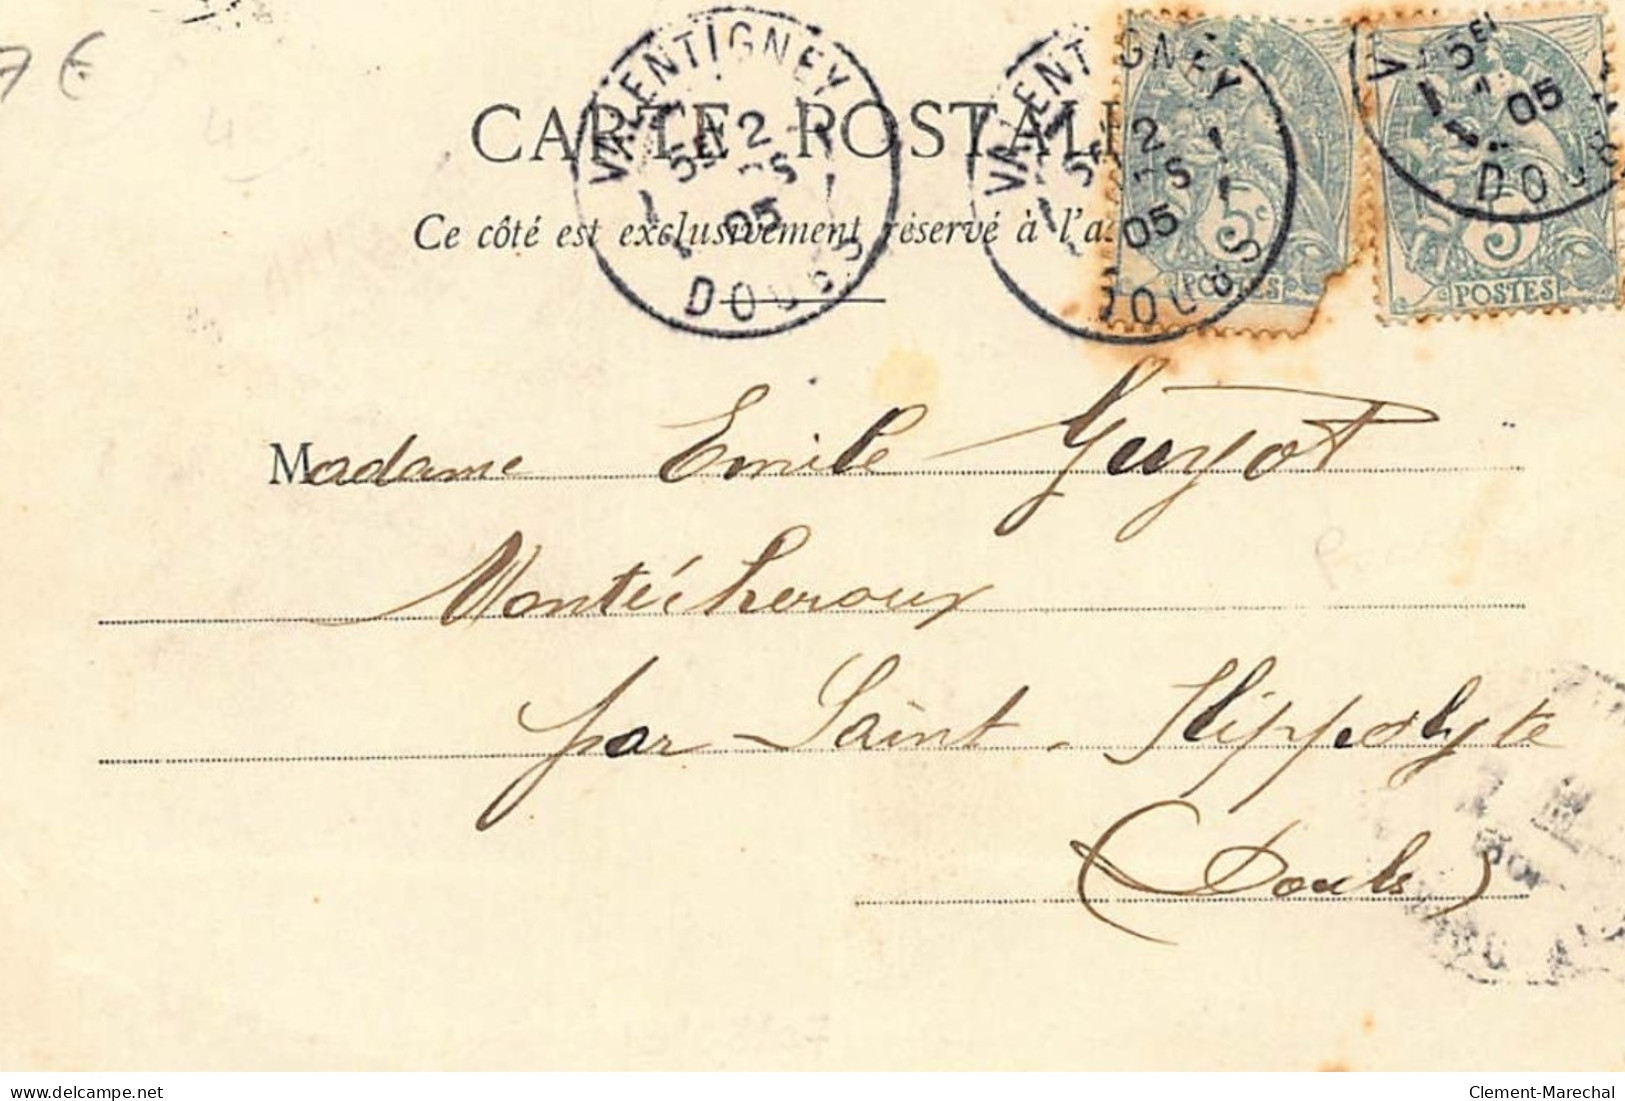 7 €
CARTE POSTAL
Ce côté est exclusivement réservé à l'a
VALENTIGNEY
5E 2
05
DOUBS
VALENTIGNEY
5E 2
05
DOUBS
5E
05
DOUBS
5c
POSTES
5
POSTES
Madame Emile Guyot
Montécheroux
par Saint-Hippolyte
(Doubs)
delcampe.net
Clement-Marechal